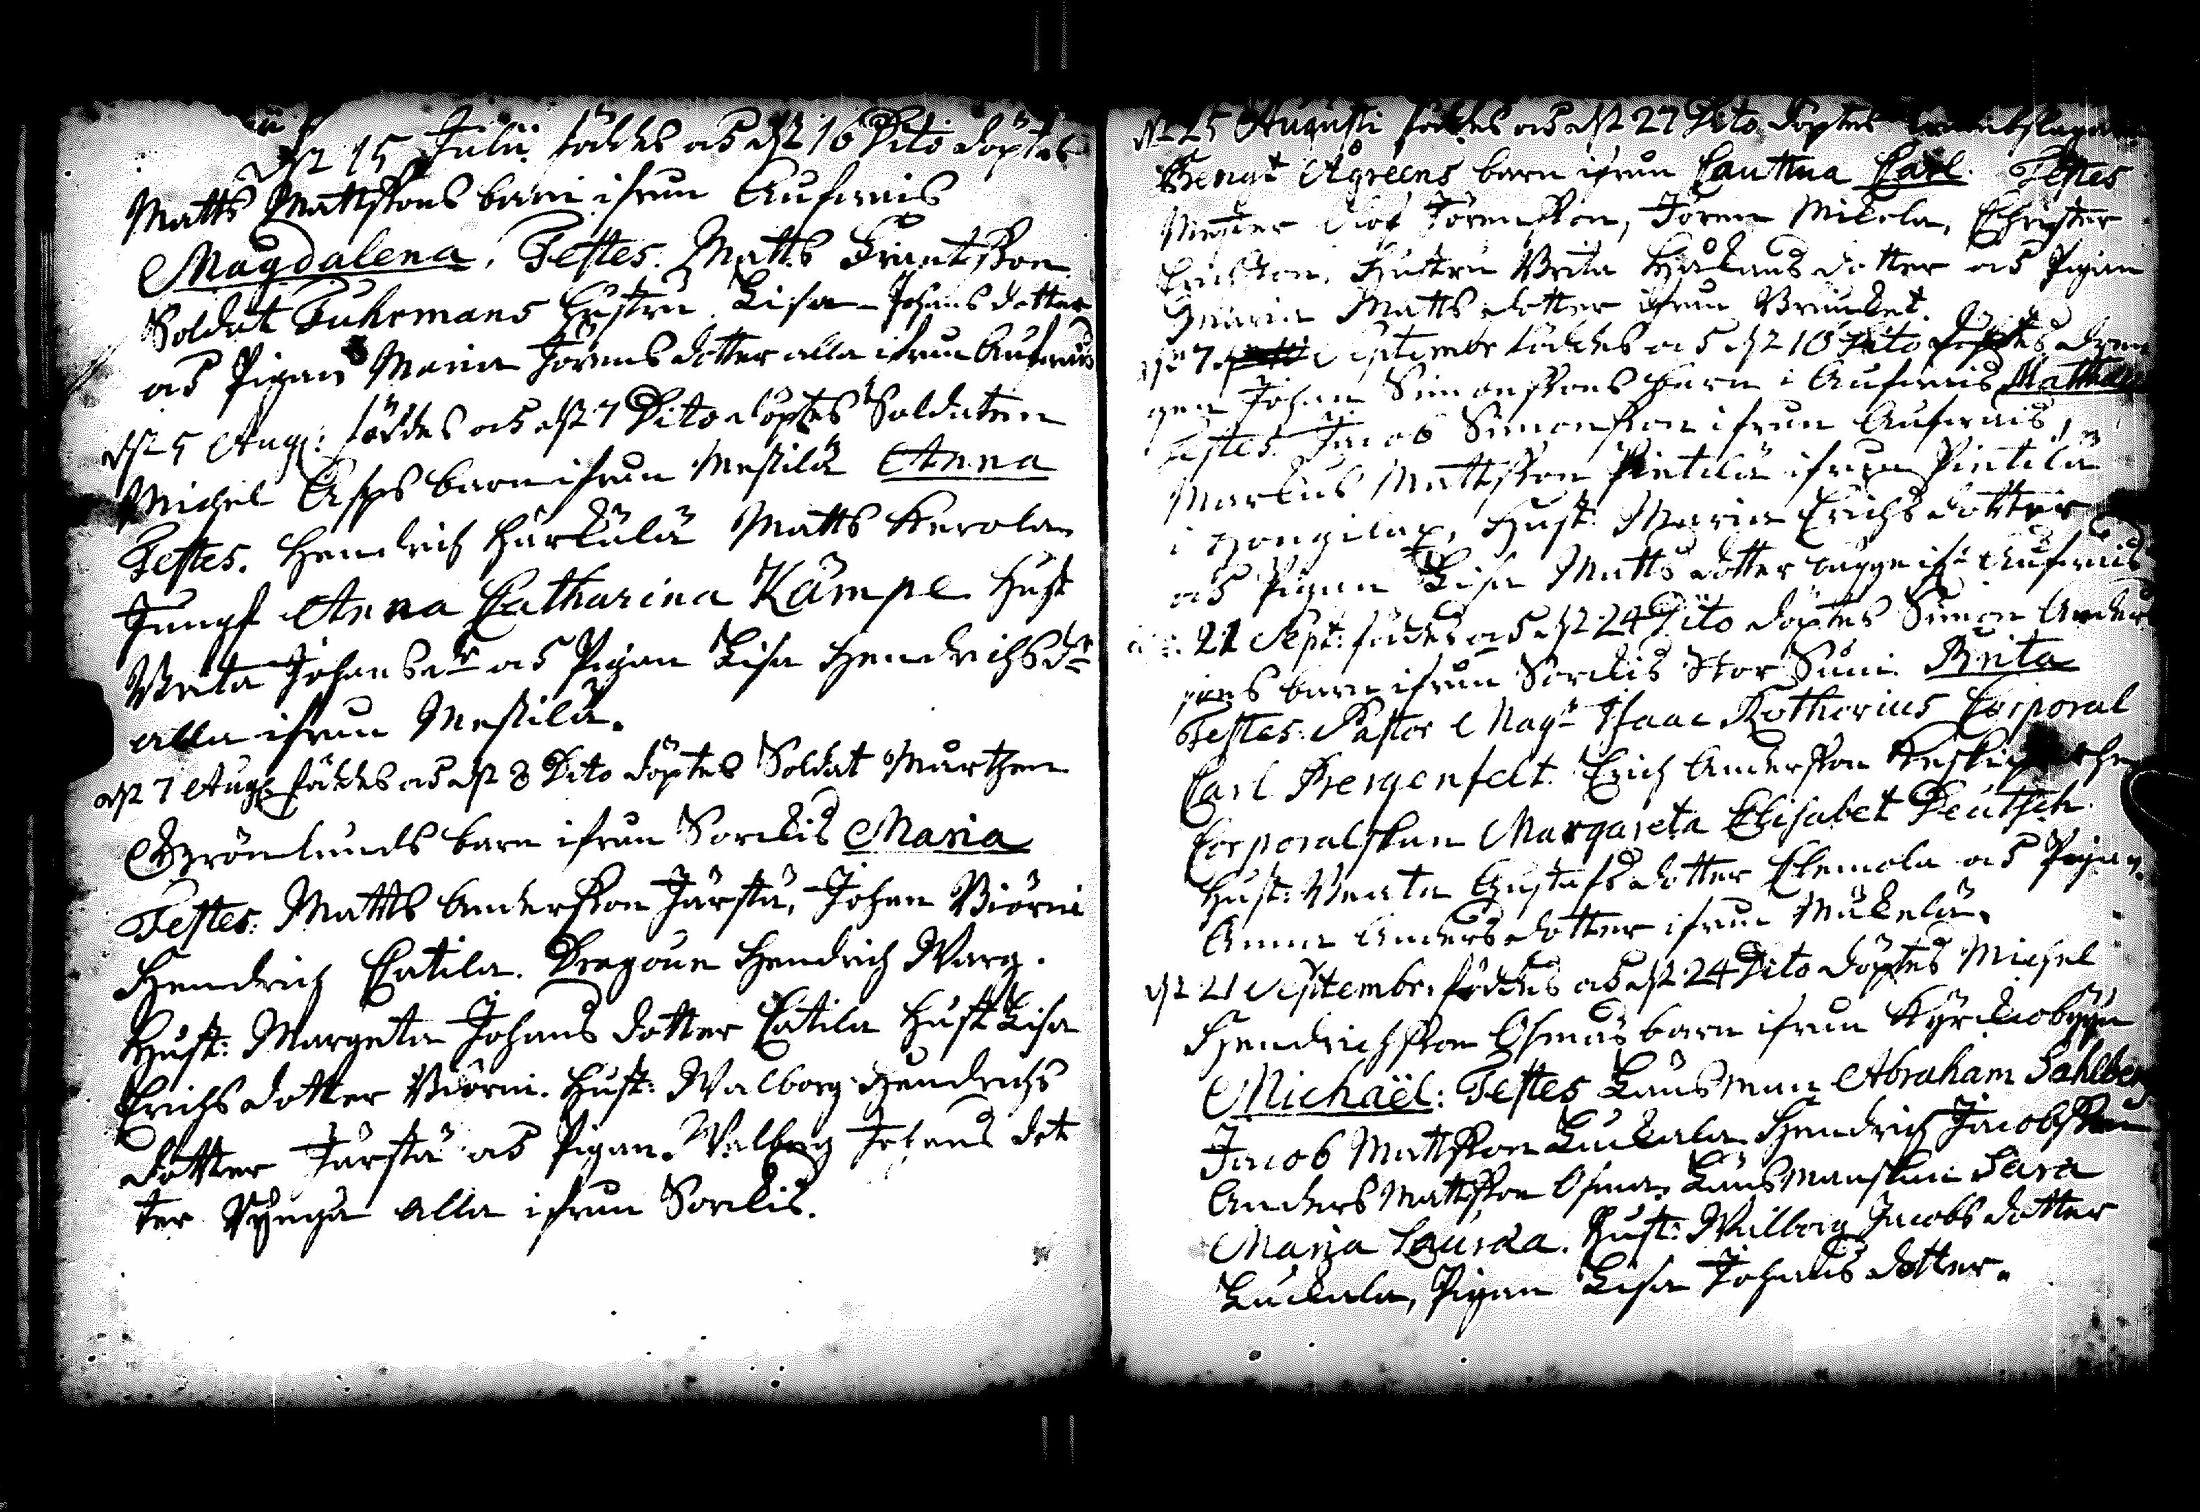 dħ 15 Julii föddes och dħ 16 Dito döptes
Matts Mattssons barn ifrån Aufwais
Magdalena. Testes. Matts Frantsson
Soldat Fuhrmans hustru Lisa Johans dotter
och Pigan Maria Jörens dotter alla ifrån Aufwais
dħ 5 Aug: föddes och dħ 7 Dito döptes Soldaten
Michel Asps barn ifrån Messilä Anna
Testes. Hendrich Härkälä Matts Kerola
Jungf Anna Catharina Kämpe Hust
Brita Johansdr och Pigan Lisa Hendrichsdr
alla ifrån Messilä.
dħ 7 Aug: föddes och dħ 8 Dito döptes Soldat Mårthen
Grönlunds barn ifrån Sorckis Maria
Testes: Matts Andersson Järstä, Johan Biörni
Hendrich Catila. Dragoun Hendrich Warg.
Hust: Margeta Johans dotter Catila Hust Lisa
Erichs dotter Biörni. Hust: Walborg Hendrichs
dotter Järstä och Pigan Walborg Johans dot
ter alla ifrån Sorckis.
25 Augusti föddes och dħ 27 Dito döptes
Bengt Ågreens barn ifrån Cauttua Carl. Testes
Mester Olof Jörensson, Jören Mickola, Christer
Erichsson. Hustru Brita Håkans dotter och Pigan
Maria Matts dotter ifrån Bruuket.
dħ 7 Septembr föddes och dħ 10 Dito döptes dren
gen Johan Simonssons barn i Aufwais
Testes. Jacob Simonsson ifrån Aufwais,
Markus Mattsson Pintilä ifrån Pintilä
i Hongilax, Hust: Maria Erichs dotter
och Pigan Lisa Matts dotter ifr: Aufwais
21 Sept: föddes och dħ 24 Dito döptes Simon Anders
sons barn ifrån Sorckis Stor Suni Brita
Testes: Pastor Magr Isaac Rotherius Corporal
Carl Bergenfelt. Erich Andersson
Corporalskan Margareta Elisabet Deutsch
Hust: Beata Gustafs dotter Clemola och Pigan
Anna Anders dotter ifrån Mäkelä.
dħ 21 Septembr föddes och dħ 24 Dito döptes Michel
Hendrichsson Osmas barn ifrån Kyrckiobyyn
Michaël: Testes Länsman Abraham Sahlberg
Jacob Mattsson Luckala Hendrich Jacobsson
Anders Mattsson Osma, Länsmanskan Sara
Maria Laurda. Hust: Walborg Jacobs dotter
Luckala, Pigan Lisa Johans dotter.